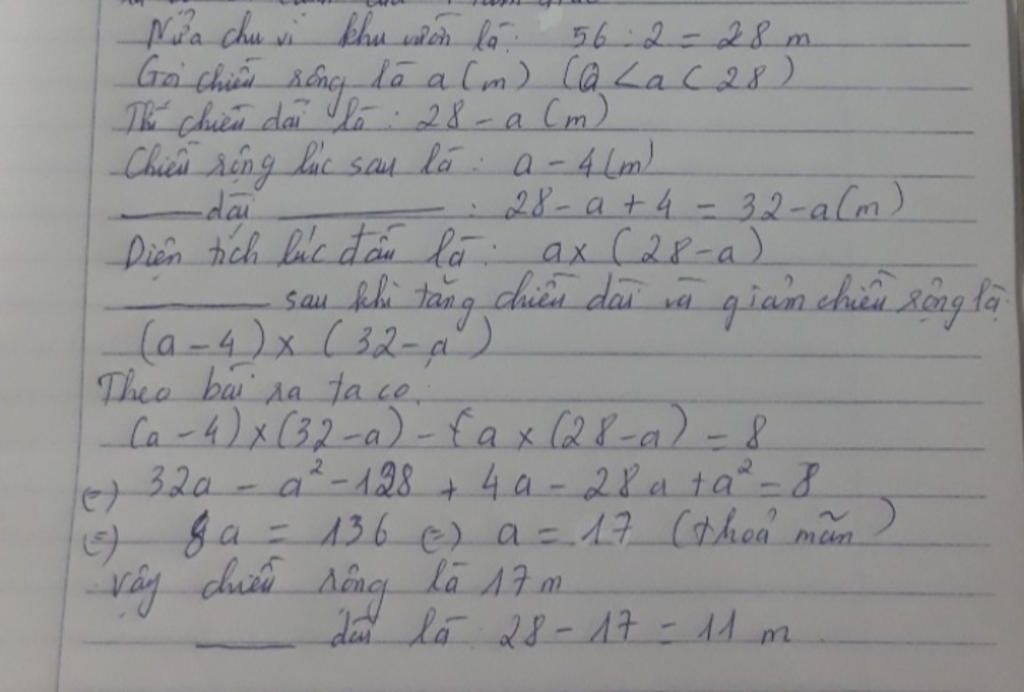 Nửa chu vi khu vườn là: 56 : 2 = 28 m
Gọi chiều rộng là a (m) (0 < a < 28)
Thì chiều dài là: 28 - a (m)
Chiều rộng lúc sau là: a - 4 (m)
dài : 28 - a + 4 = 32 - a (m)
Diện tích lúc đầu là: a x (28 - a)
sau khi tăng chiều dài và giảm chiều rộng là
(a - 4) x (32 - a)
Theo bài ra ta có.
(a - 4) x (32 - a) - {a x (28 - a) = 8
(=) 32a - a² - 128 + 4a - 28a + a² = 8
(=) 8a = 136 (=) a = 17 (thoả mãn)
vậy chiều rộng là 17 m
dài là 28 - 17 = 11 m